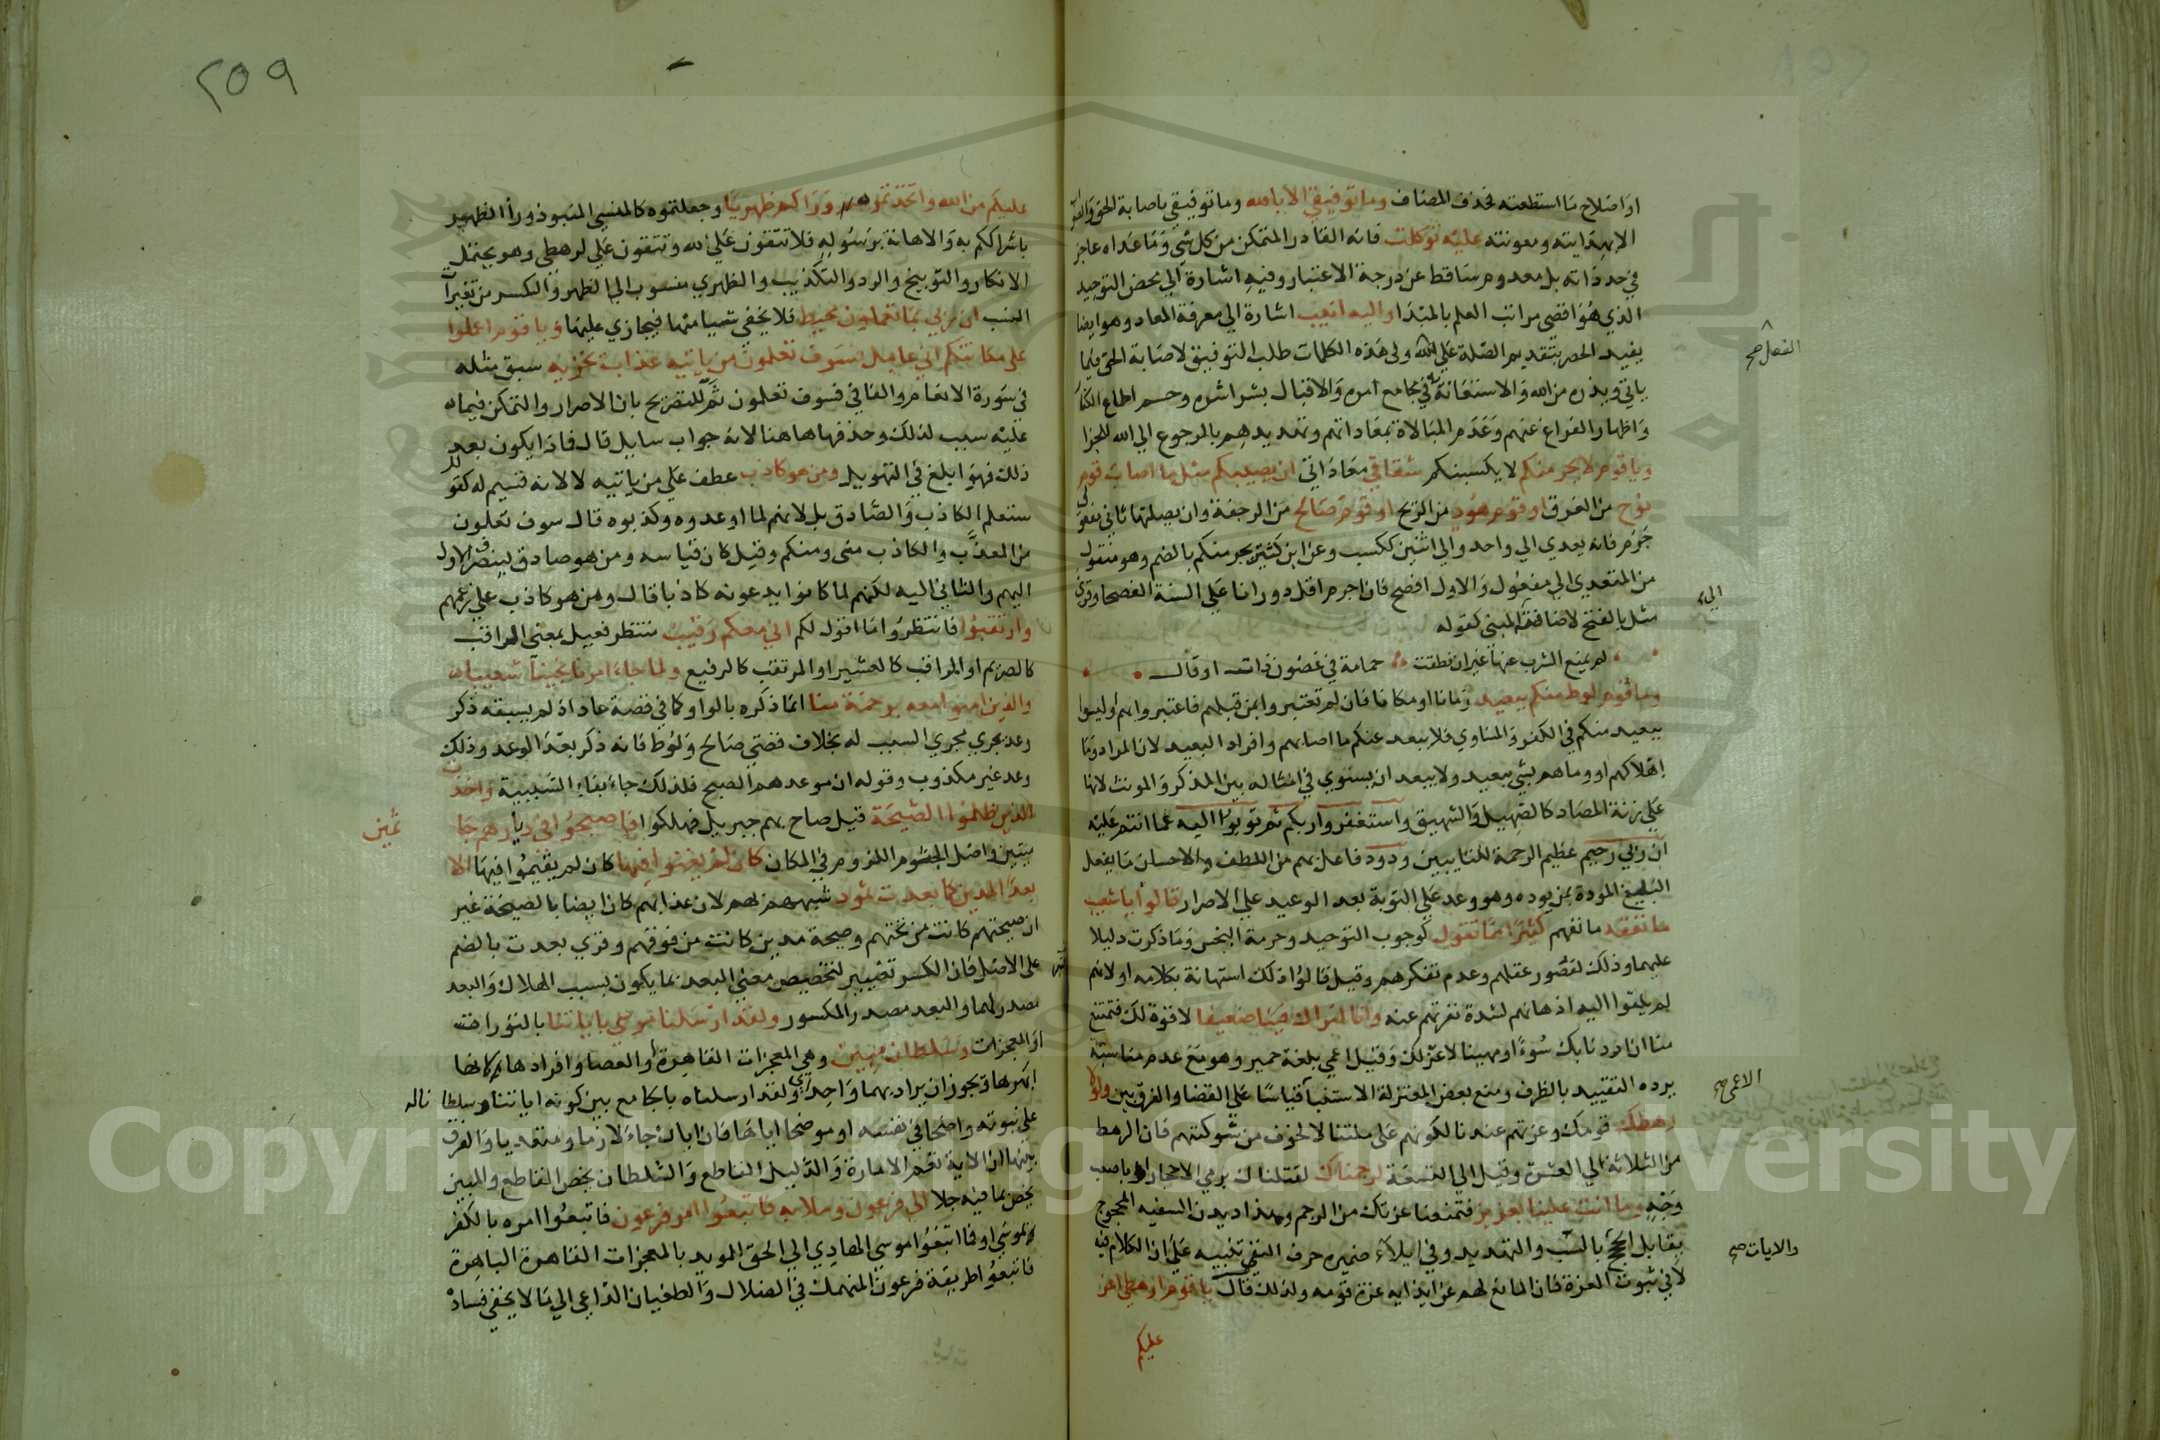 او اصلاح ما استطعته فحذف المضاف وما توفيقي الا بالله وما توفيقي باصابة الحق والصواب
الا بهدايته ومعونته عليه توكلت فانه القادر المتمكن من كل شي وما عداه عاجز
في حد ذاته بل معدوم ساقط عن درجة الاعتبار وفيه اشارة الي محض التوحيد
الذي هو اقصي مراتب العلم بالمبدا واليه انيب اشارة الي معرفة المعاد وهو ايضا
يفيد الحصر بتقديم الصلة علي الفعل وفي هذه الكلمات طلب التوفيق لاصابة الحق فيما
ياتي ويذره من الله والاستعانة في مجامع امره والاقبال بشراشره وحسم اطماع الكفار
واظهار الفراغ عنهم وعدم المبالاة بمعاداتهم وتهديدهم بالرجوع الي الله للجزا
ويا قوم لا يجرمنكم لا يكسبنكم شقاقي معاداتي ان يصيبكم مثل ما اصاب قوم
نوح من الغرق او قوم هود من الريح او قوم صالح من الرجفة وان بصلتها ثاني مفعولي
جرم فانه يعدي الي واحد والي اثنين ككسب وعن ابن كثير يجرمنكم بالضم وهو منقول
من المتعدي الي مفعول والاول افصح فان اجرم اقل دورانا علي السنة الفصحا وقري
مثل بالفتح لاضافته الي المبني كقوله
لم يمنع الشرب عنها غير ان نطقت حمامة في غصون ذات اوقال
وما قوم لوط منكم ببعيد زمانا او مكانا فان لم تعتبروا بمن قبلهم فاعتبروا بهم او ليسوا
ببعيد منكم في الكفر والمساوي فلا يبعد عنكم ما اصابهم وافراد البعيد لان المراد وما
اهلاكهم او وما هم بشي ببعيد ولا يبعد ان يستوي في امثاله بين المذكر والمونث لانها
علي زنة المصادر كالصهيل والشهيق واستغفروا ربكم ثم توبوا اليه عما انتم عليه
ان ربي رحيم عظيم الرحمة للتايبين ودود فاعل بهم من اللطف والاحسان ما يفعل
البليغ المودة بمن يوده وهو وعد علي التوبة بعد الوعيد علي الاصرار قالوا يا شعيب
ما نفقه ما نفهم كثيرا مما تقول كوجوب التوحيد وحرمة البخس وما ذكرت دليلا
عليهما وذلك لقصور عقلهم وعدم تفكرهم وقيل قالوا ذلك استهانة بكلامه او لانهم
لم يلقوا اليه اذهانهم لشدة نفرتهم عنه وانا لنراك فينا ضعيفا لا قوة لك فتمتنع
منا ان اردنا بك سوءا او مهينا لا عز لك وقيل اعمي بلغة حمير وهو مع عدم مناسبته
يرده التقييد بالظرف ومنع بعض المعتزلة الاستنبآ قياسا علي القضا والفرق بين ولولا
رهطك قومك وعزتهم عندنا لكونهم علي ملتنا لا لخوف من شوكتهم فان الرهط
من الثلاثة الي العشرة وقيل الي التسعة لرجمناك لقتلناك برمي الاحجار او باصعب
وجه وما انت علينا بعزيز فتمنعنا عزتك من الرجم وهذا ديدن السفيه المحجوج
يقابل الحجج بالسب والتهديد وفي ايلآء ضميره حرف النفي تنبيه علي ان الكلام فيه
لا في ثبوت العزة فان المانع لهم عن ايذايه عزة قومه ولذلك قال يا قوم ارهطي اعز
عليكم
الفعل صح
الي
الاعمي صح
والايات صح
٢٥٩
عليكم من الله واتخذتموه وراكم ظهريا وجعلتموه كالمنسي المنبوذ ورا الظهر
باشراككم به والاهانة برسوله فلا تتقون علي لله وتتقون علي لرهطي وهو يحتمل
الانكار والتوبيخ والرد والتكذيب والظهري منسوب الي الظهر والكسر من تغيرآ
النسب ان ربي بما تعملون محيط فلا يخفي شيا منها فيجازي عليها ويا قوم اعملوا
علي مكانتكم اني عامل سوف تعلمون من ياتيه عذاب يخزيه سبق مثله
في سورة الانعام والفا في فسوف تعلمون ثم للتصريح بان الاصرار والتمكن فيما هم
عليه سبب لذلك وحذفها هاهنا لانه جواب سايل قال فاذا يكون بعد
ذلك فهو ابلغ في التهويل ومن هو كاذب عطف علي من ياتيه لا لانه قسيم له كقولك
ستعلم الكاذب والصادق بل لانهم لما اوعدوه وكذبوه قال سوف تعلمون
من المعذب والكاذب مني ومنكم وقيل كان قياسه ومن هو صادق لينصرف الاول
اليهم والثاني اليه لكنهم لما كانوا يدعونه كاذبا قال ومن هو كاذب علي زعمهم
وارتقبوا فانتظروا ما اقول لكم اني معكم رقيب منتظر فعيل بمعني المراقب
كالصريم او المراقب كالعشير او المرتقب كالرفيع ولما جاء امرنا نجينا شعيبا
والذين امنوا معه برحمة منا انما ذكره بالواو كما في قصة عاد اذ لم يسبقه ذكر
وعد يجري مجري السبب له بخلاف قصتي صالح ولوط فانه ذكر بعد الوعد وذلك
وعد غير مكذوب وقوله ان موعدهم الصبح فلذلك جاء بفاء السببية واخذت
الذين ظلموا الصيحة قيل صاح بهم جبريل فهلكوا فاصبحوا في ديارهم جا
ثمين
ميتين واصل الجثوم اللزوم في المكان كان لم يغنوا فيها كان لم يقيموا فيها الا
بعدا لمدين كما بعدت ثمود شبههم بهم لان عذابهم كان ايضا بالصيحة غير
ان صيحتهم كانت من تحتهم وصيحة مدين كانت من فوقهم وقري بعدت بالضم
علي الاصل فان الكسر تغيير لتخصيص معني البعد بما يكون بسبب الهلاك والبعد
مصدر لهما والبعد مصدر المكسور ولقد ارسلنا موسي باياتنا بالتوراة
او المعجزات وسلطان مبين وهي المعجزات القاهرة او العصا وافرادها لانها
ابهرها ويجوز ان يراد بهما واحد اي ولقد ارسلناه بالجامع بين كونه اياتنا وسلطانا له
علي نبوته واضحا في نفسه او موضحا اياها فان ابان جاء لازما ومتعديا والفرق
بينهما ان الاية تعم الامارة والدليل القاطع والسلطان يخص القاطع والمبين
يخص بما فيه جلا الي فرعون وملايه فاتبعوا امر فرعون فاتبعوا امره بالكفر
بموسي او فما اتبعوا موسي الهادي الي الحق المويد بالمعجزات القاهرة الباهرة
فاتبعوا طريقة فرعون المنهمك في الضلال والطغيان الداعي الي ما لا يخفي فساده
Copyright © King Saud University